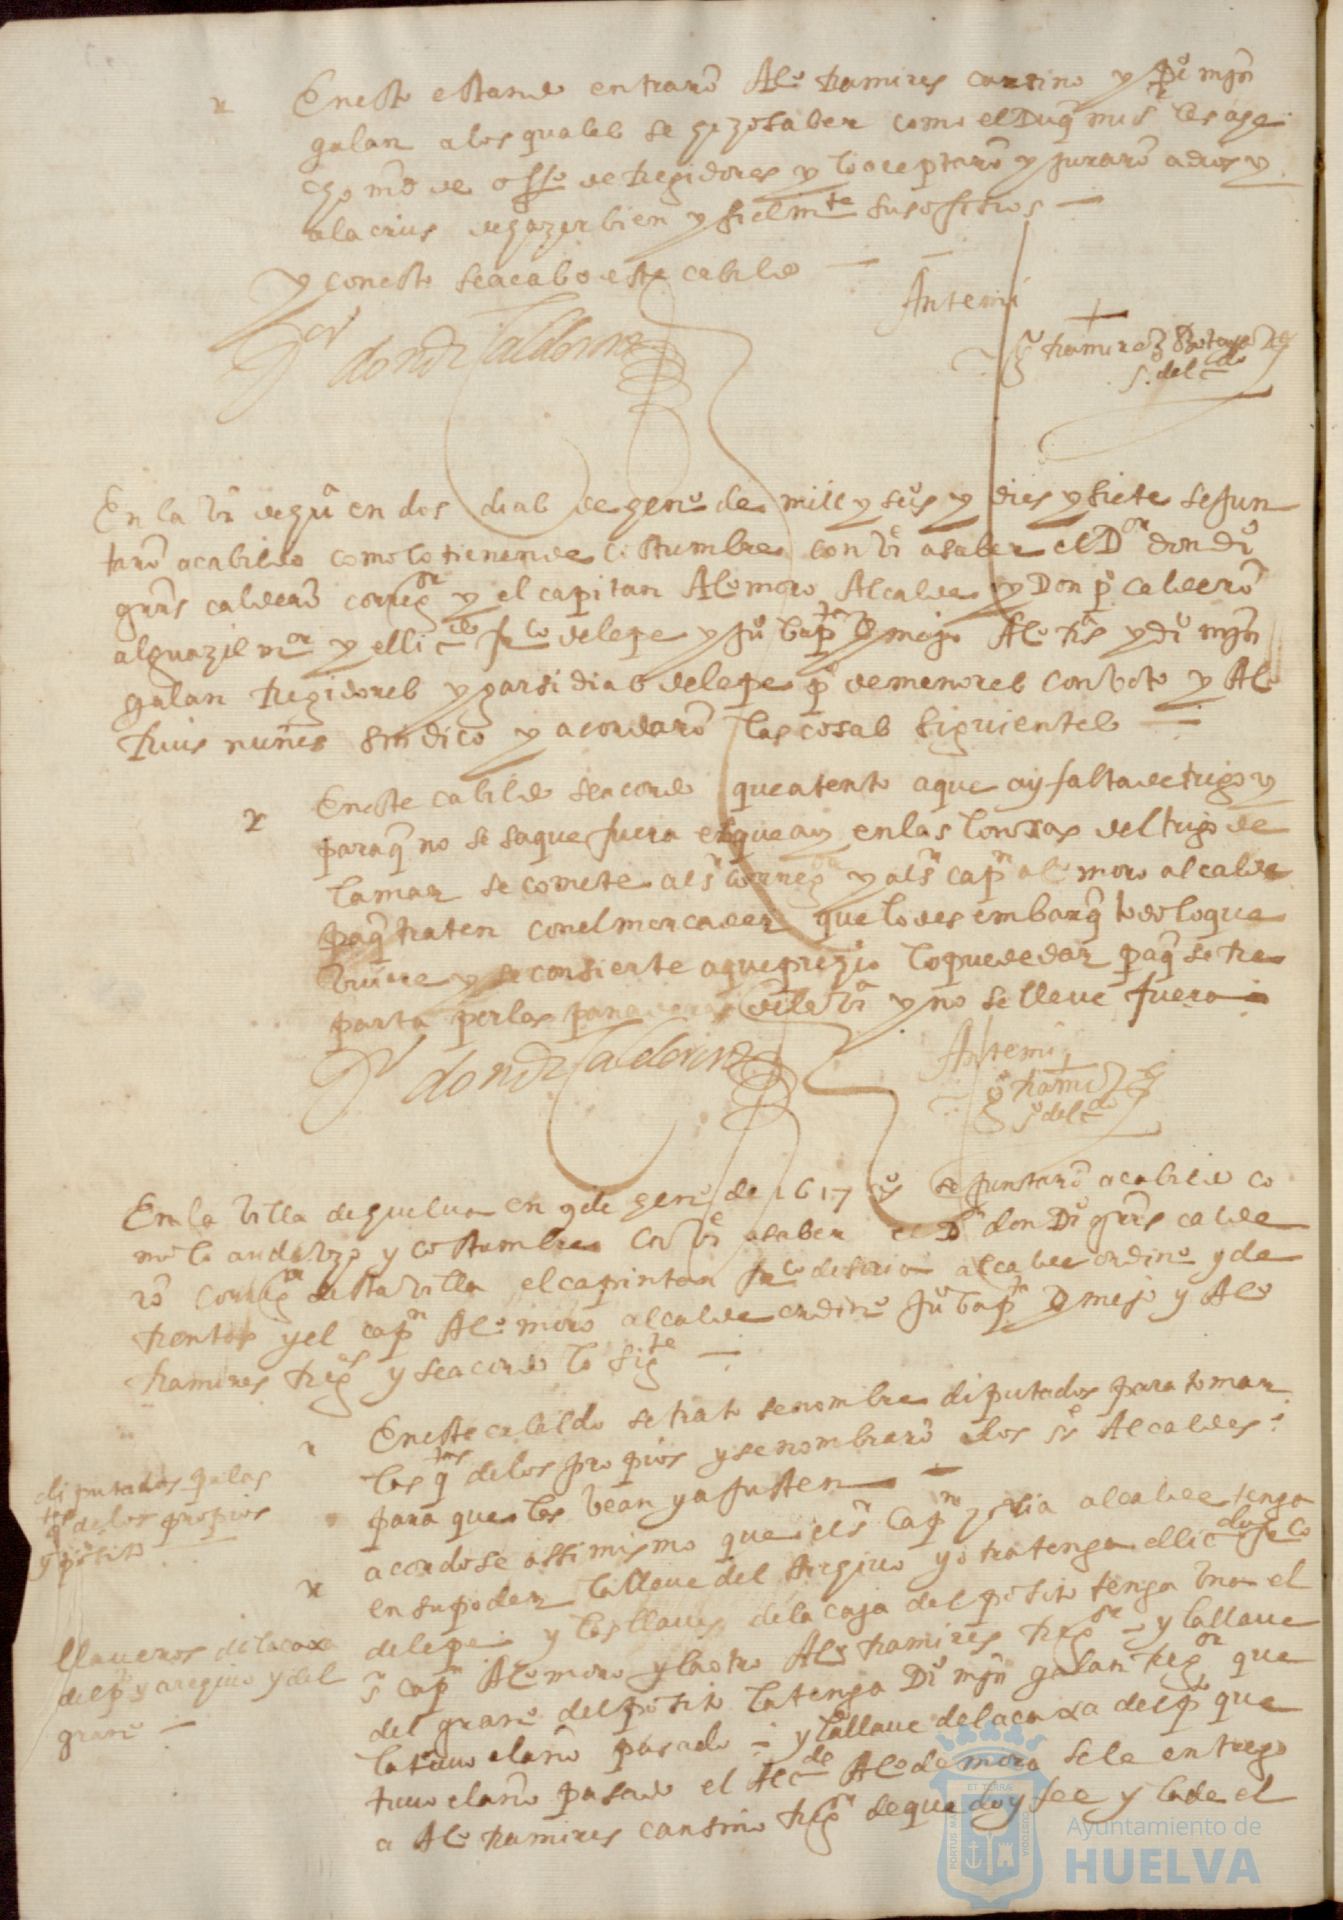 En este estando entrarō Alº Ramires cansino y Dº mῆn
galan a los quales se hizo saber como el Duqᵉ mi sʳ les aze
mrd de offº de Regidores y lo aceptarō y jurarō a dios y
a la crus de hazer bien y fielmᵗᵉ sus ofisios —
y con esto se acabo este cabildo — —
Dᵒʳ don dº Calderon
Ante mi
Ramires
sº del cᵈᵒ
En la vª de guª en dos dias de henº de mill y seisº y dies y siete se jun
tarō a cabildo como lo tienen de costumbre conviº a saber el Dᵒʳ don dº
grᵃˢ calderō correg ᵒʳ y el capitan Alº moro Alcalde y Don pº calderō
alguazil mᵒʳ y el licᵈᵒ frᶜᵒ de lepe y juº bapᵗᵃ Bmejo Alº Rˢ y dº mῆn
galan Regidores y garsi dias de lepe pʳ de menores con voto y Alº
Ruis nuñes sindico y acordarō las cosas siguientes —
En este cabildo se acordo que atento a que ay falta de trigo y
para q̄ no se saque fuera el que ay en las lonxas del trigo de
la mar se comete al sʳ correg ᵒʳ y al sʳ capᵃⁿ alº moro alcalde
pa q̄ traten con el mercader que lo desembarq̄ todo lo que
tuviere y se consierte a que prezio lo puede dar pa q̄ se re
parta por las panaderas de la vª y no se lleve fuera —
Dʳ don dº Calderon
Ante mi
Rami
sº del cᵈᵒ
En la villa de huelva en 9 de henº de 1617 aºˢ se juntarō a cabildo co
mo lo an de uzo y costumbre conviº a saber el Dʳ don Dº grᵃˢ calde
rō correg ᵒʳ desta villa el capintan frᶜᵒ de soria alcalde ordinº y de
Rentas y el capᵃⁿ Alº moro alcalde ordinº juº bapᵗᵃ Bmejo y Alº
Ramires Regᵉˢ y se acordo lo sigᵗᵉ —
En este cabildo se trato se nombre diputados para tomar
las qᵗᵃˢ de los propios y se nombrarō a los sʳᵉˢ Alcaldes
para que las vean y ajusten —
diputados pa las
qᵗᵃˢ de los propios
y posito
acordose assimismo que el sʳ capᵃⁿ soria alcalde tenga
en su poder la llave del Archivo y otra tenga el licᵈᵒ frᶜᵒ
de lepe y las llaves de la caja del posito tenga una el
sʳ capᵃⁿ Alº moro y la otra Alº Ramires Reg ᵒʳ — y la llave
del granº del posito la tenga Dº mῆn galan Reg ᵒʳ que
la tuvo el año pasado — y la llave de la caxa del pᵗᵒ que
tuvo el año pasado el Alcᵈᵉ Alº de mora se le entrego
a Alº Ramires cansino Reg ᵒʳ de que doy fee y la de el
llaveros de la caxa
del pº y archivo y del
granº —
PORTUS MARIS ET TERRÆ CUSTODIA
Ayuntamiento de
HUELVA